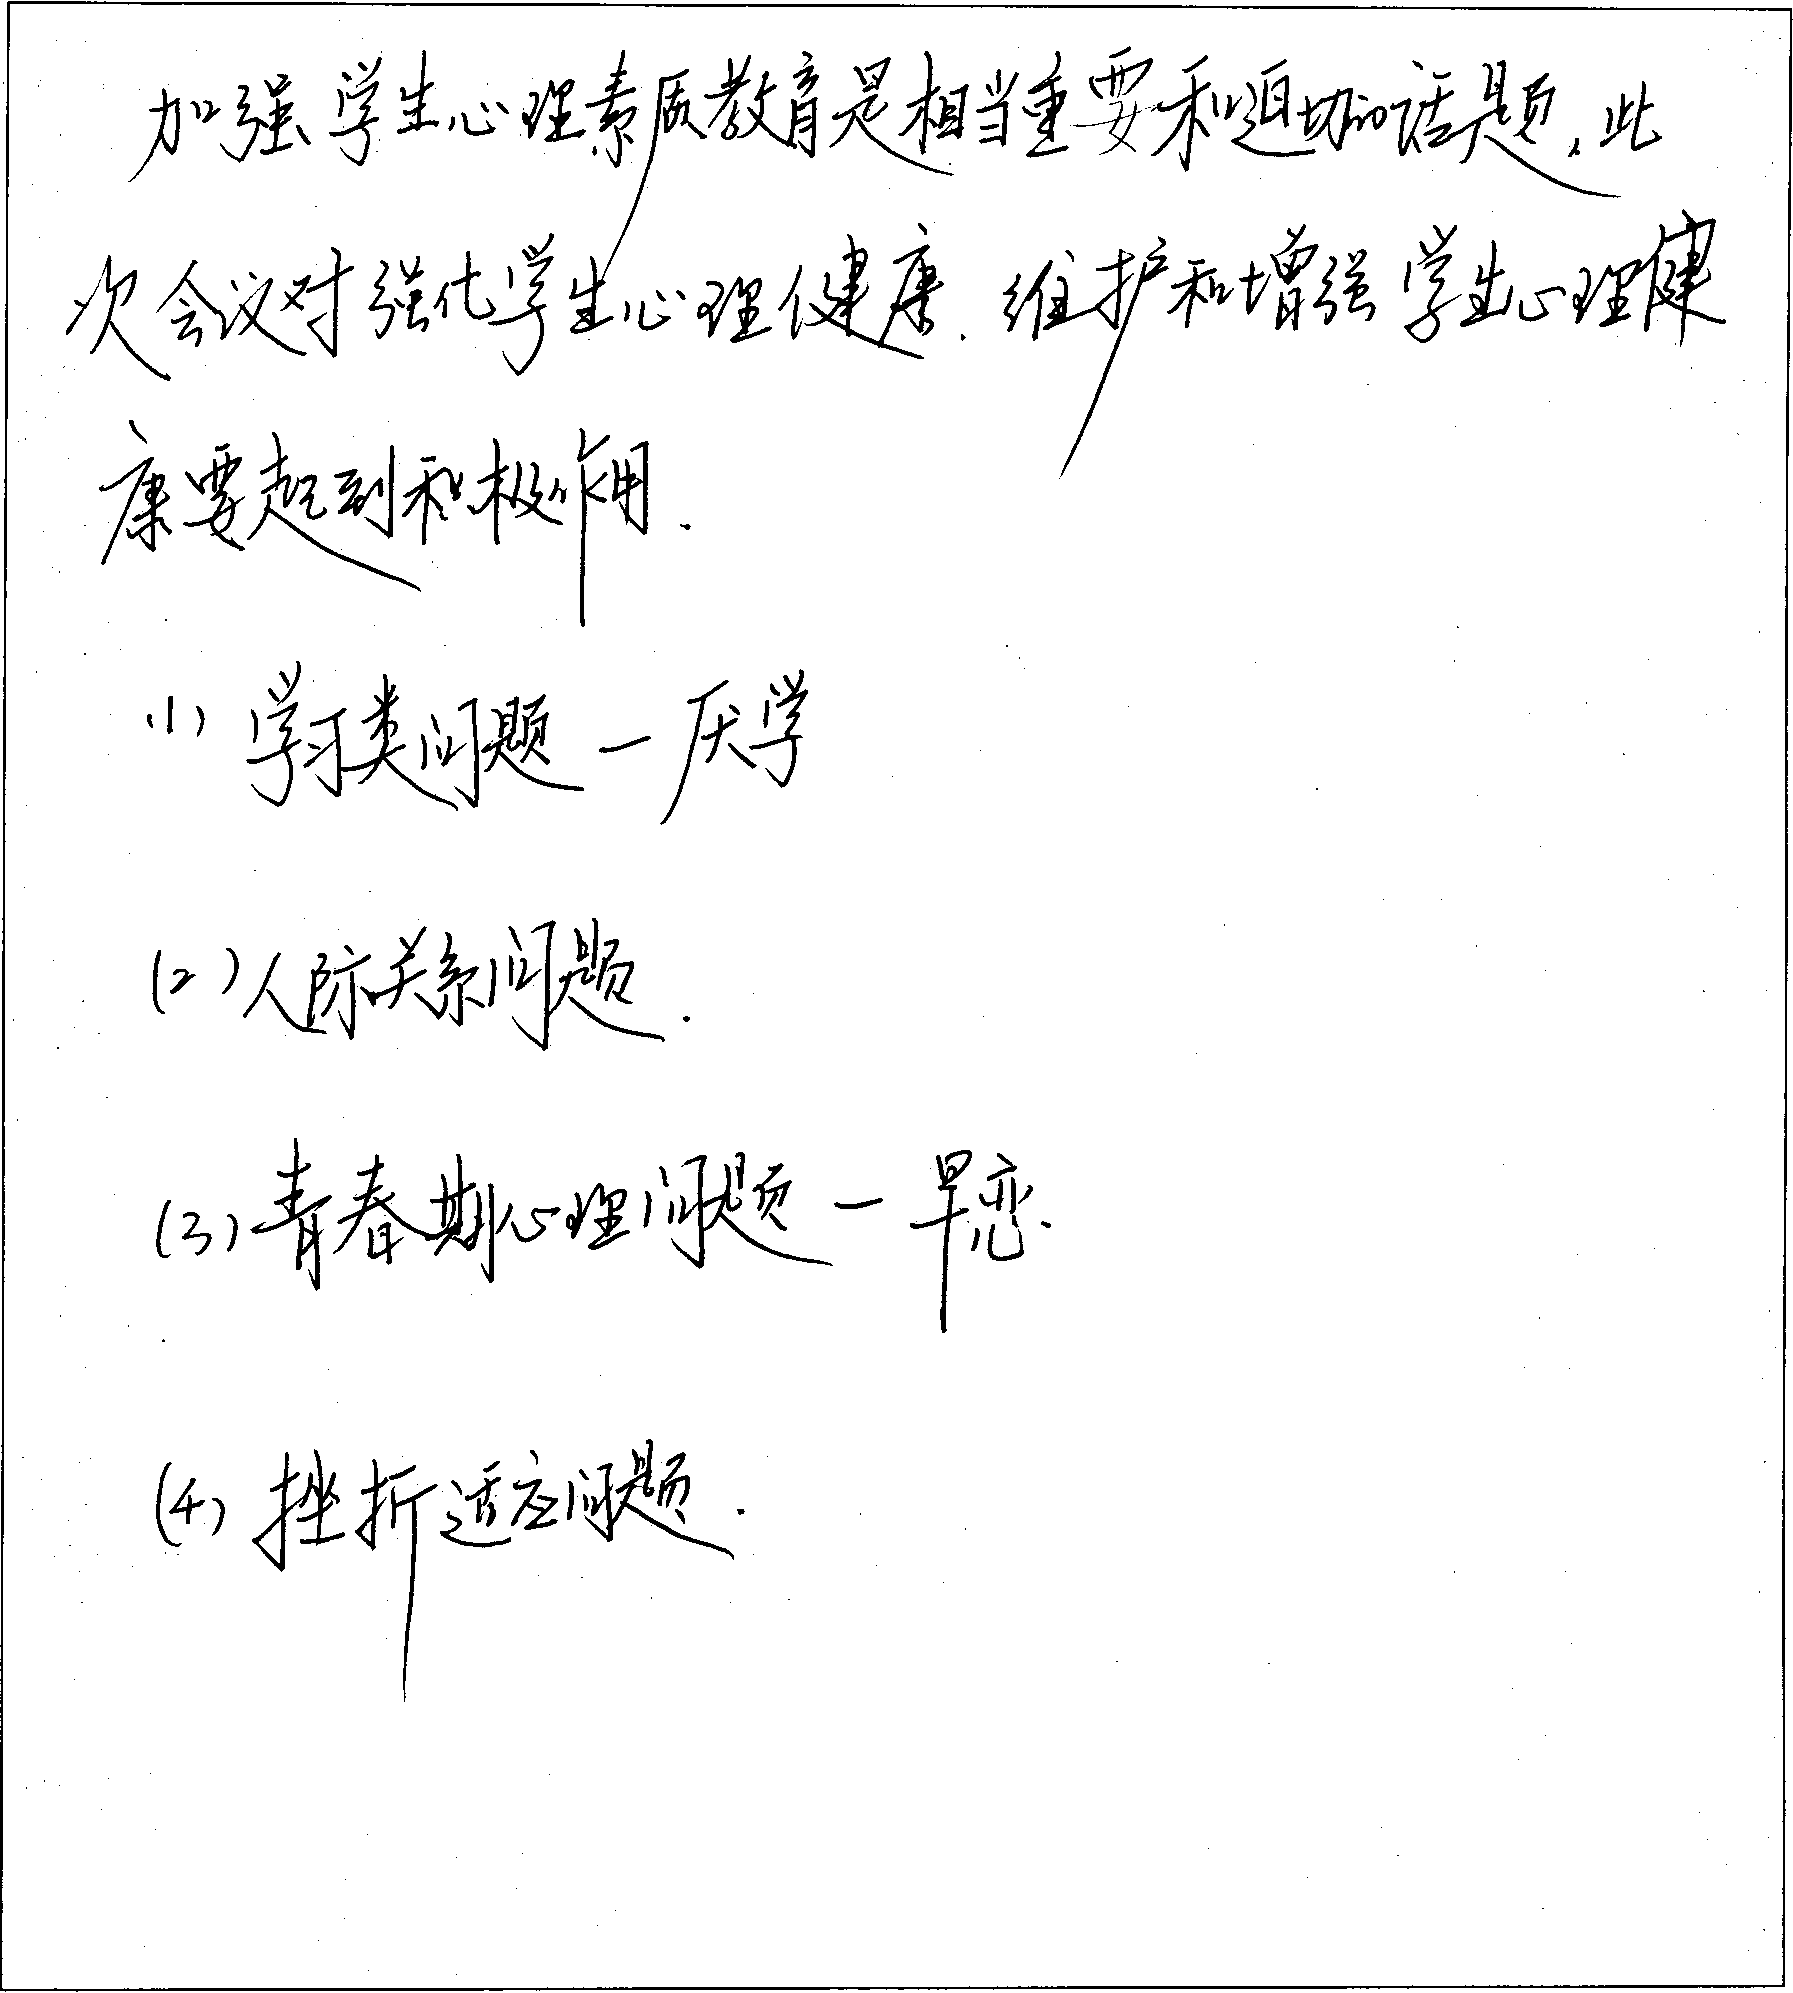 加强学生心理素质教育是相当重要和迫切的话题,此
次会议对强化学生心理健康.维护和增强学生心理健
康要起到积极作用.
(1)学习类问题—厌学
(2)人际关系问题.
(3)青春期心理问题—早恋.
(4)挫折适应问题.